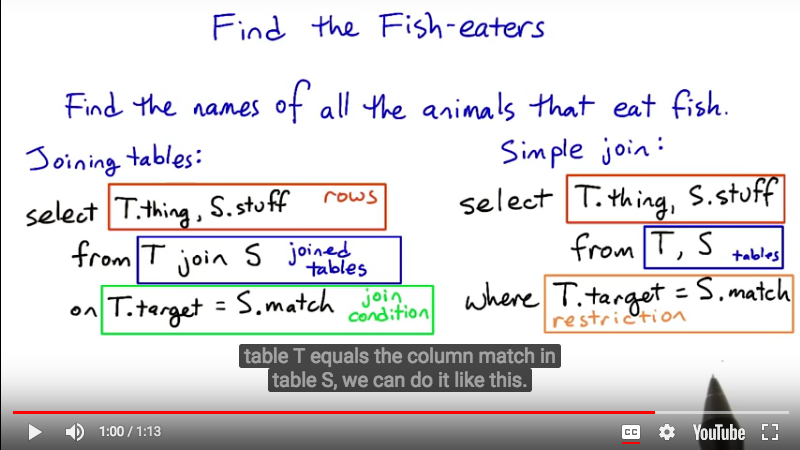 Find the Fish-eaters
Find the names of all the animals that eat fish.
Joining tables:
select T.thing, S.stuff rows
from T join S joined tables
on T.target = S.match join condition
Simple join:
select T.thing, S.stuff
from T, S tables
where T.target = S.match
restriction
table T equals the column match in
table S, we can do it like this.
1:00 / 1:13
CC
YouTube